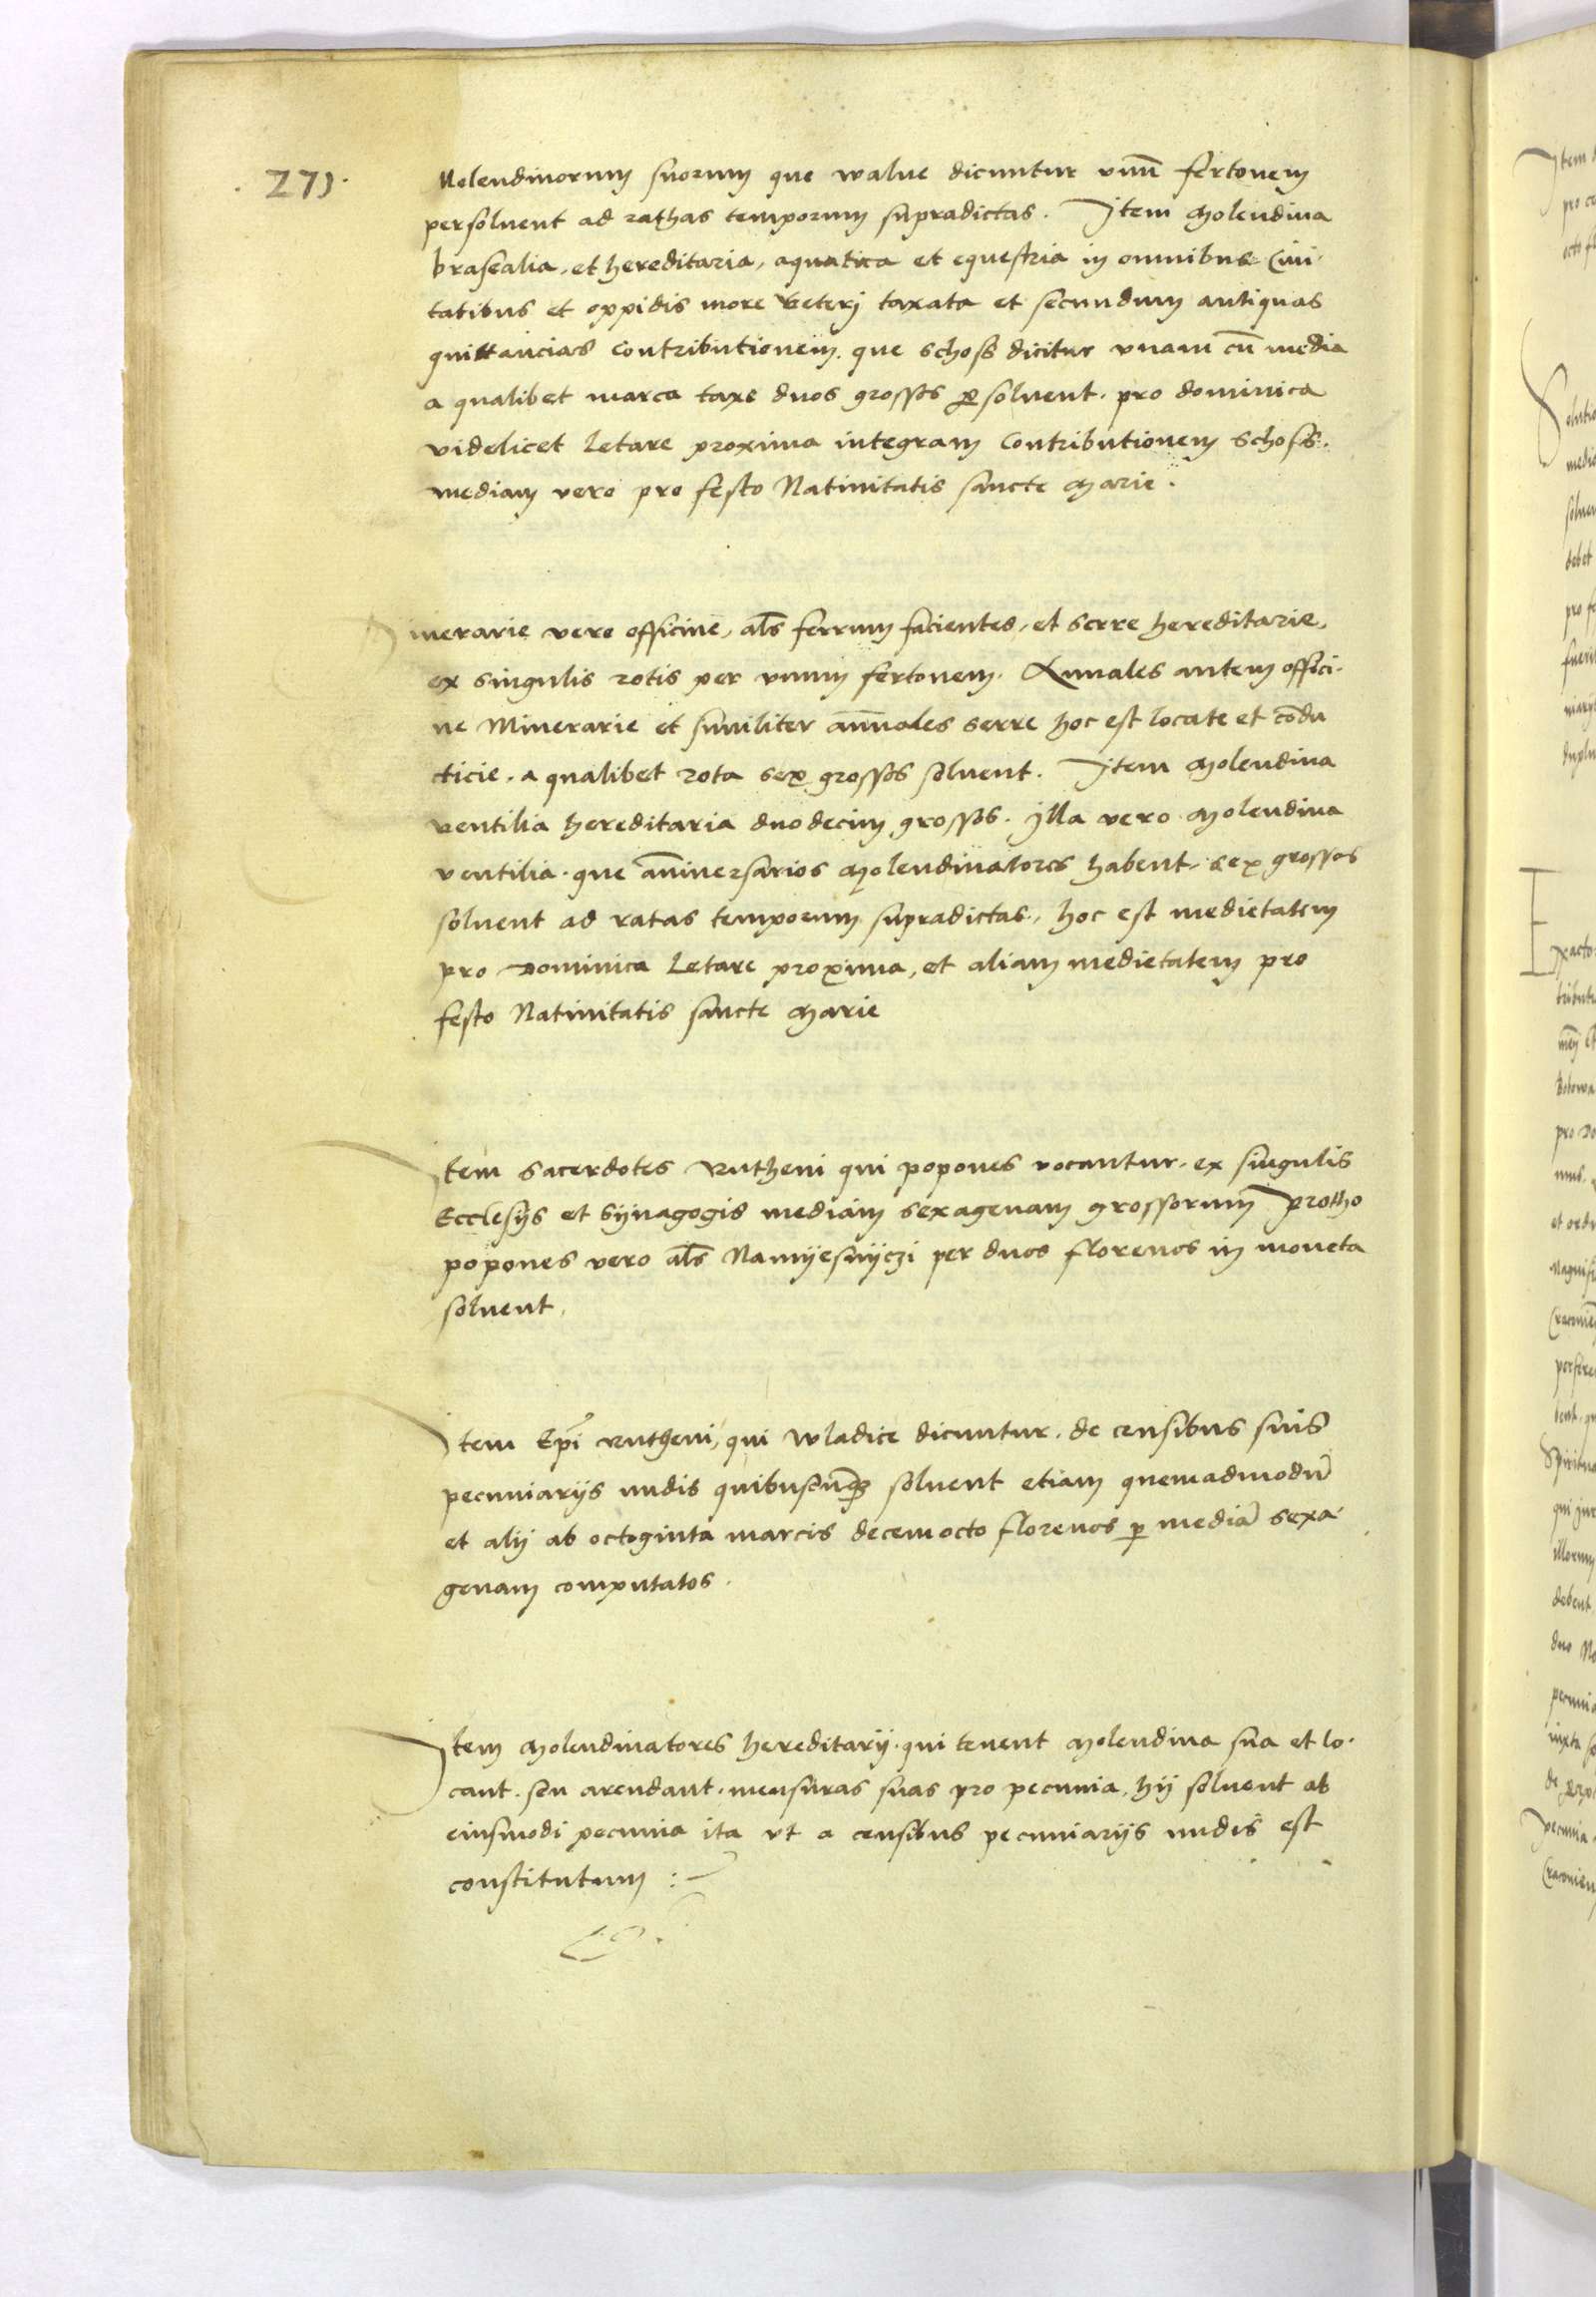 . 271 .
Molendinorum suorum que walue dicuntur vnũ fertonem
persoluent ad rathas temporum supradictas . Item Molendina
brasealia , et hereditaria , aquatica et equestria in omnibus Ciui-
tatibus et oppidis more veterj taxata et secundum antiquas
quittancias Contributionem . que schoss dicitur vnam cũ media
a qualibet marca taxe duos grossos ꝑsoluent . pro dominica
videlicet Letare proxima integram Contributionem schoss .
mediam vero pro festo Natiuitatis sancte Marie .
Minerarie vero officine , als ferrum facientes , et serre hereditarie ,
ex singulis rotis per vnum fertonem . Annales autem offici-
ne Minerarie et similiter annuales serre hoc est locate et cõdu
cticie . a qualibet rota sex grossos soluent . Item Molendina
ventilia hereditaria duodecim grossos . Illa vero Molendina
ventilia . que anniuersarios Molendinatores habent , sex grossos
soluent ad ratas temporum supradictas , hoc est medietatem
pro Dominica Letare proxima , et aliam medietatem pro
festo Natiuitatis sancte Marie
Item sacerdotes Rutheni qui popones vocantur . ex singulis
Ecclesijs et synagogis mediam sexagenam grossorum Protho
popones vero als Namyesnyczi per duos florenos in moneta
soluent .
Item Epi Rutheni , qui wladice dicuntur . de censibus suis
pecuniarijs nudis quibuscũqʒ soluent etiam quemadmodũ
et alij ab octoginta marcis decemocto florenos ꝑ mediã sexa-
genam computatos .
Item Molendinatores hereditarij . qui tenent Molendina sua et lo-
cant . seu arendant . mensuras suas pro pecunia , hij soluent ab
eiusmodi pecunia ita vt a censibus pecuniarijs nudis est
constitutum :